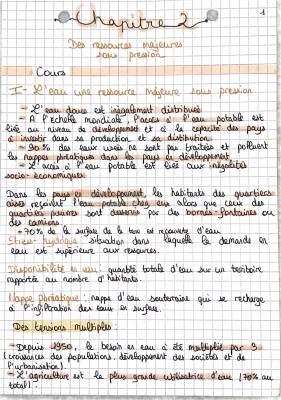 1
Chapitre 2
Des ressources majeures
sous pression
Cours
I- L'eau une ressource majeure sous pression
- L'eau douce est inégalement distribuée
- A l'échelle mondiale, l'accès à l'eau potable est
liée au niveau de développement et à la capacité des pays
à investir dans sa production et sa distribution.
- 90% des eaux usées ne sont pas traitées et polluent
les nappes phréatiques dans les pays en développement.
- L'accès à l'eau potable est liée aux inégalités
socio-économiques
Dans les pays en développement, les habitants des quartiers
aisés reçoivent l'eau potable chez eux alors que ceux des
quartiers pauvres sont desservis par des bornes-fontaines ou
des camions.
- 70% de la surface de la terre est recouverte d'eau
Stress-hydrique situation dans laquelle la demande en
eau est supérieure aux ressources.
Disponibilité en eau: quantité totale d'eau sur un territoire
rapportée au nombre d'habitants.
Nappe phréatique: nappe d'eau souterraine qui se recharge
à l'infiltration des eaux en surface.
Des tensions multiples:
- Depuis 1950, le besoin en eau a été multiplié par 3
(croissances des populations, développement des sociétés et de
l'urbanisation).
- L'agriculture est la plus grande utilisatrice d'eau (70% au
total)